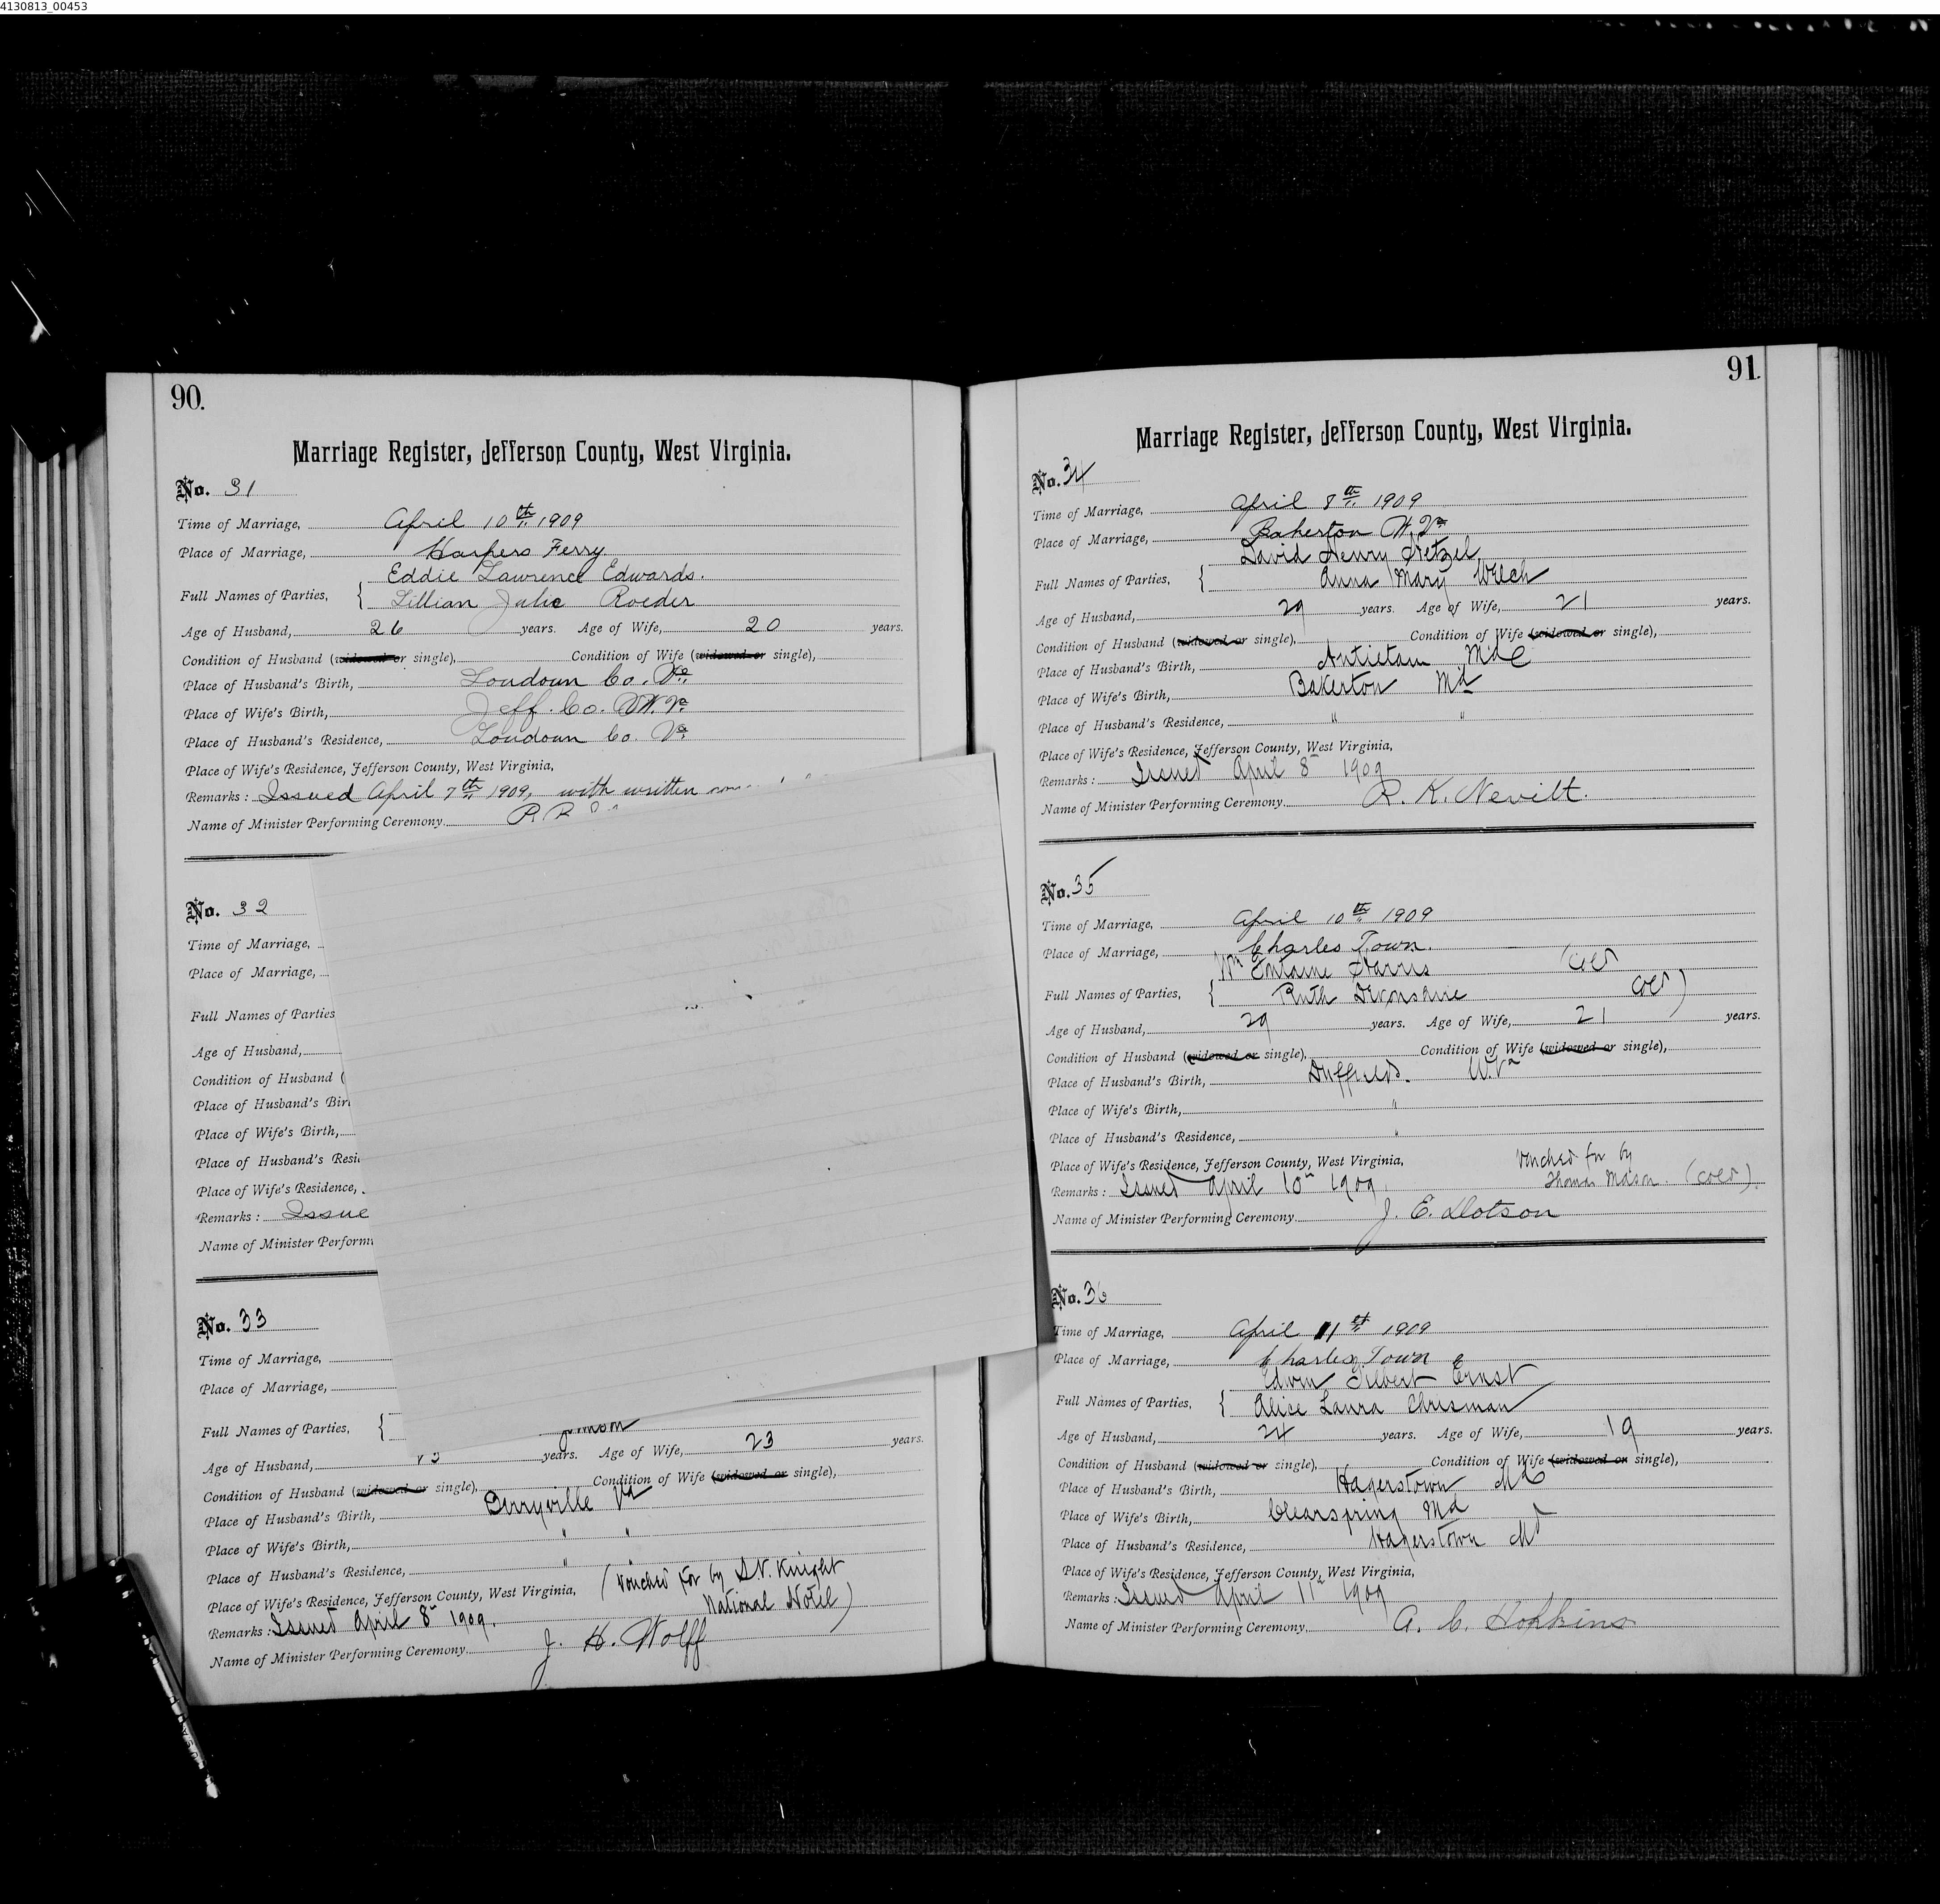 4130813_00453
90.
Marriage Register, Jefferson County, West Virginia.
No. 31
Time of Marriage, April 10th 1909
Place of Marriage, Harpers Ferry
Eddie Lawrence Edwards.
Full Names of Parties, { Lillian Julie Roeder
Age of Husband, 26 years. Age of Wife, 20 years.
Condition of Husband (widowed or single), Condition of Wife (widowed or single),
Place of Husband's Birth, Loudoun Co. Va.
Place of Wife's Birth, Jeff. Co. W. Va.
Place of Husband's Residence, Loudoun Co. Va.
Place of Wife's Residence, Jefferson County, West Virginia,
Remarks: Issued April 7th 1909, with written
Name of Minister Performing Ceremony.
No. 32
Time of Marriage,
Place of Marriage,
Full Names of Parties
Age of Husband,
Condition of Husband (
Place of Husband's Birt
Place of Wife's Birth,
Place of Husband's Resi
Place of Wife's Residence,
Remarks: Issue
Name of Minister Perform
No. 33
Time of Marriage,
Place of Marriage,
Full Names of Parties, {
Age of Husband, years. Age of Wife, 23 years.
Condition of Husband (widowed or single), Condition of Wife (widowed or single),
Place of Husband's Birth, Berryville Va
Place of Wife's Birth, " "
Place of Husband's Residence, " "
Place of Wife's Residence, Jefferson County, West Virginia, (Vouched for by S.N. Knight
National Hotel)
Remarks: Issued April 8th 1909.
Name of Minister Performing Ceremony. J. H. Wolff
91.
Marriage Register, Jefferson County, West Virginia.
No. 34
Time of Marriage, April 8th 1909
Place of Marriage, Bakerton W. Va
David Henry
Full Names of Parties, { Anna Mary Welch
Age of Husband, 29 years. Age of Wife, 21 years.
Condition of Husband (widowed or single), Condition of Wife (widowed or single),
Place of Husband's Birth, Antietam Md
Place of Wife's Birth, Bakerton Md
Place of Husband's Residence, " "
Place of Wife's Residence, Jefferson County, West Virginia,
Remarks: Issued April 8th 1909
Name of Minister Performing Ceremony. R. K. Nevitt.
No. 35
Time of Marriage, April 10th 1909
Place of Marriage, Charles Town.
Wm Harris (Col
Full Names of Parties, { Ruth Devonshire Col)
Age of Husband, 29 years. Age of Wife, 21 years.
Condition of Husband (widowed or single), Condition of Wife (widowed or single),
Place of Husband's Birth, Duffields. W. Va
Place of Wife's Birth, "
Place of Husband's Residence, "
Place of Wife's Residence, Jefferson County, West Virginia, Vouched for by
Remarks: Issued April 10th 1909. Thomas Mason. (Cold).
Name of Minister Performing Ceremony. J. E. Dotson
No. 36
Time of Marriage, April 11th 1909
Place of Marriage, Charles Town
Edwin Filbert Ernst
Full Names of Parties, { Alice Laura Chrisman
Age of Husband, 24 years. Age of Wife, 19 years.
Condition of Husband (widowed or single), Condition of Wife (widowed or single),
Place of Husband's Birth, Hagerstown Md
Place of Wife's Birth, Clearspring Md
Place of Husband's Residence, Hagerstown Md
Place of Wife's Residence, Jefferson County, West Virginia,
Remarks: Issued April 11th 1909
Name of Minister Performing Ceremony. A. C. Hopkins